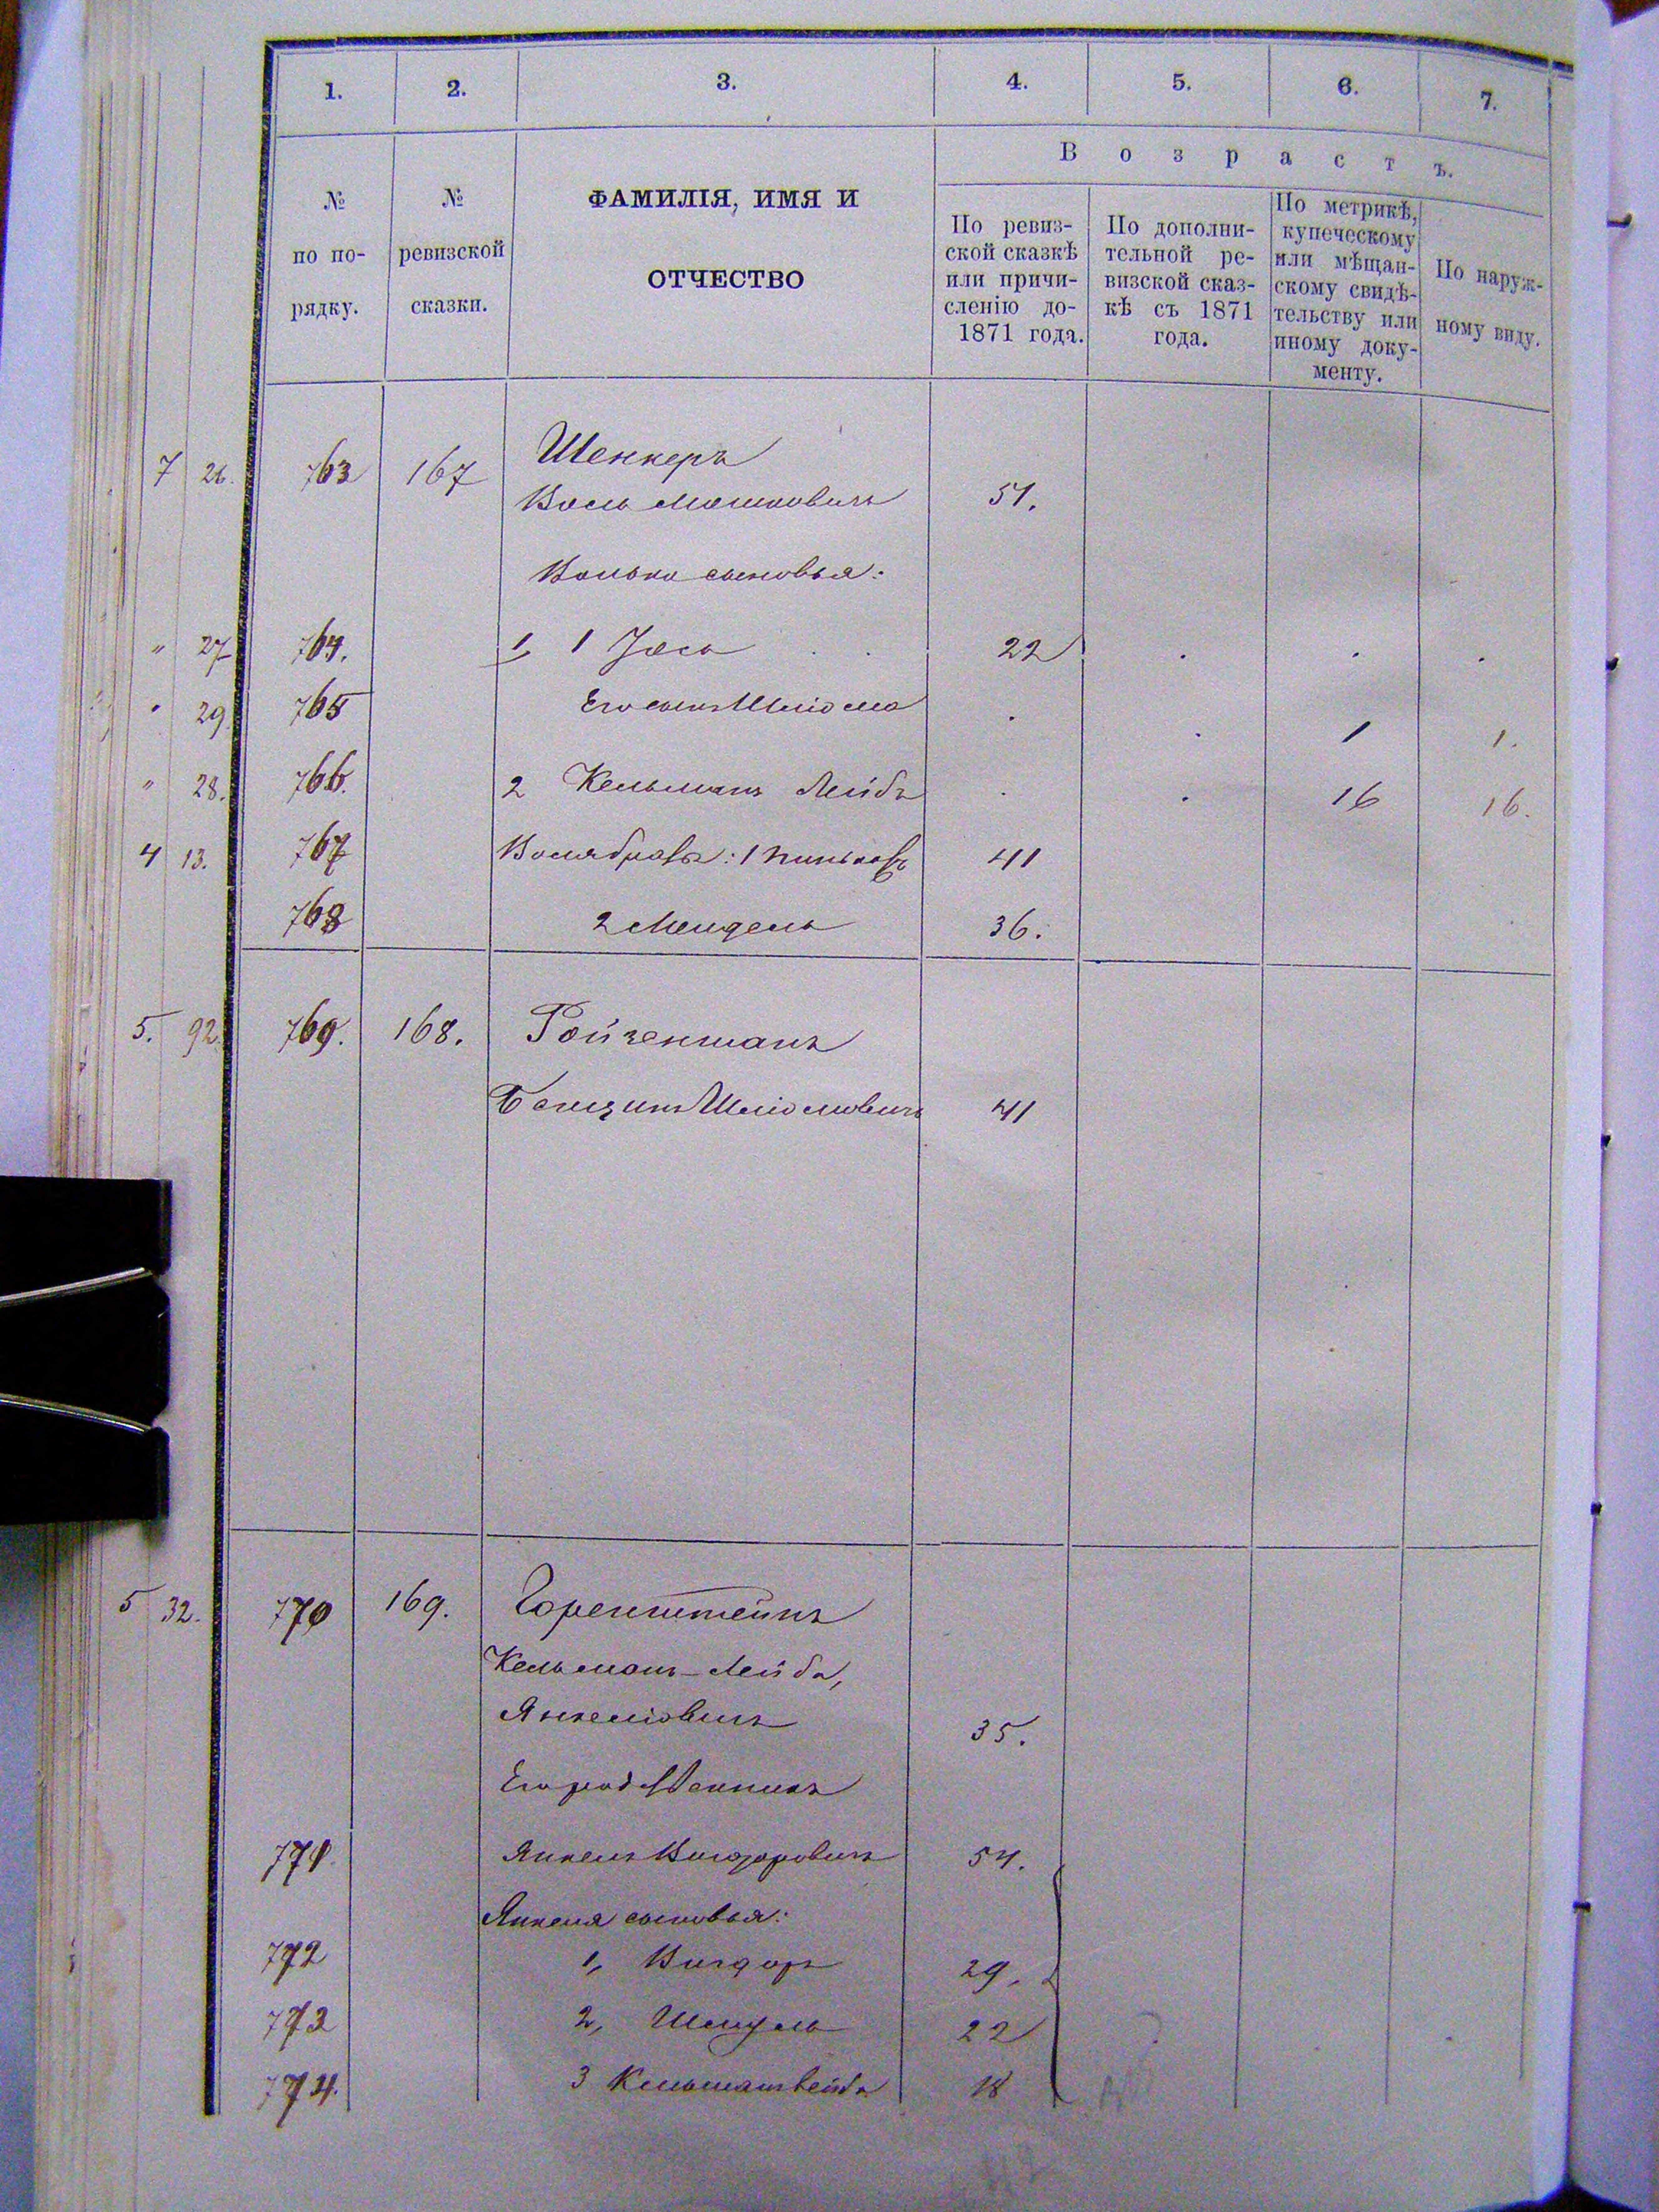 1. 2. 3. 4. 5. 6. 7.
Возрастъ.
№ по по-рядку.
№ ревизской сказки.
ФАМИЛІЯ, ИМЯ И
ОТЧЕСТВО
По ревиз-
ской сказкѣ
или причи-
сленію до-
1871 года.
По дополни-
тельной ре-
визской сказ-
кѣ съ 1871
года.
По метрикѣ,
купеческому
или мѣщан-
скому свидѣ-
тельству или
иному доку-
менту.
По наруж-
ному виду.
7 26. 763 167 Шенкеръ
Воль Мошковичъ 51.
Волько сыновья:
" 27 764. 1, 1 Іось 22
" 29. 765 Его сынъ Шліома 1 1.
" 28. 766. 2 Кельманъ Лейбъ 16 16.
4 13. 767 Воля братья: 1 Пинькасъ 41
768 2 Мендель 36.
5. 92. 769. 168. Ройзенманъ
Бенціинъ Шліомовичъ 41
5 32. 770 169. Горенштейнъ
Кельманъ-Лейба,
Янкеліовичъ 35.
Его родственникъ
771. Янкель Вигдоровичъ 54.
Янкеля сыновья:
772 1, Вигдоръ 29.
773 2, Шмуль 22
774. 3 Кельманъ Лейба 18